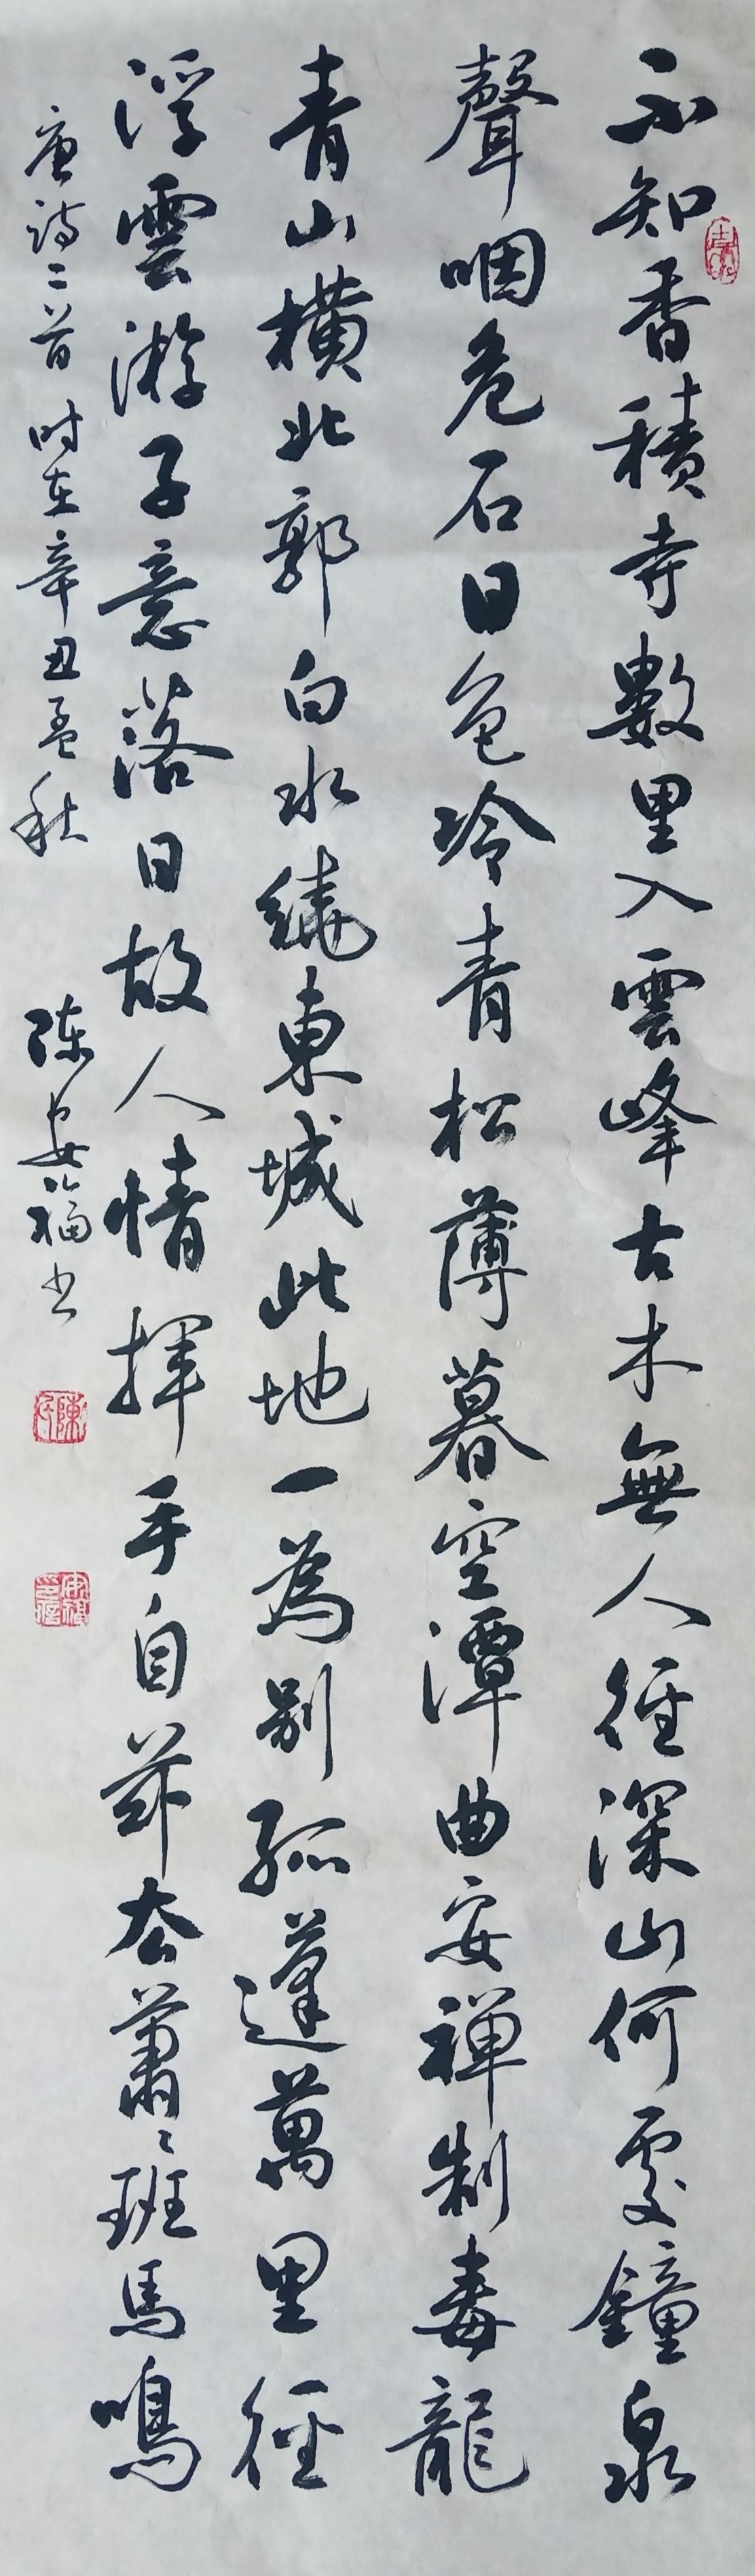 不知香積寺數里入雲峰古木無人徑深山何處鐘泉
聲咽危石日色冷青松薄暮空潭曲安禪制毒龍
青山橫北郭白水繞東城此地一為別孤蓬萬里征
浮雲游子意落日故人情揮手自茲去蕭〻班馬鳴
唐诗二首 时在辛丑孟秋 陈安福书